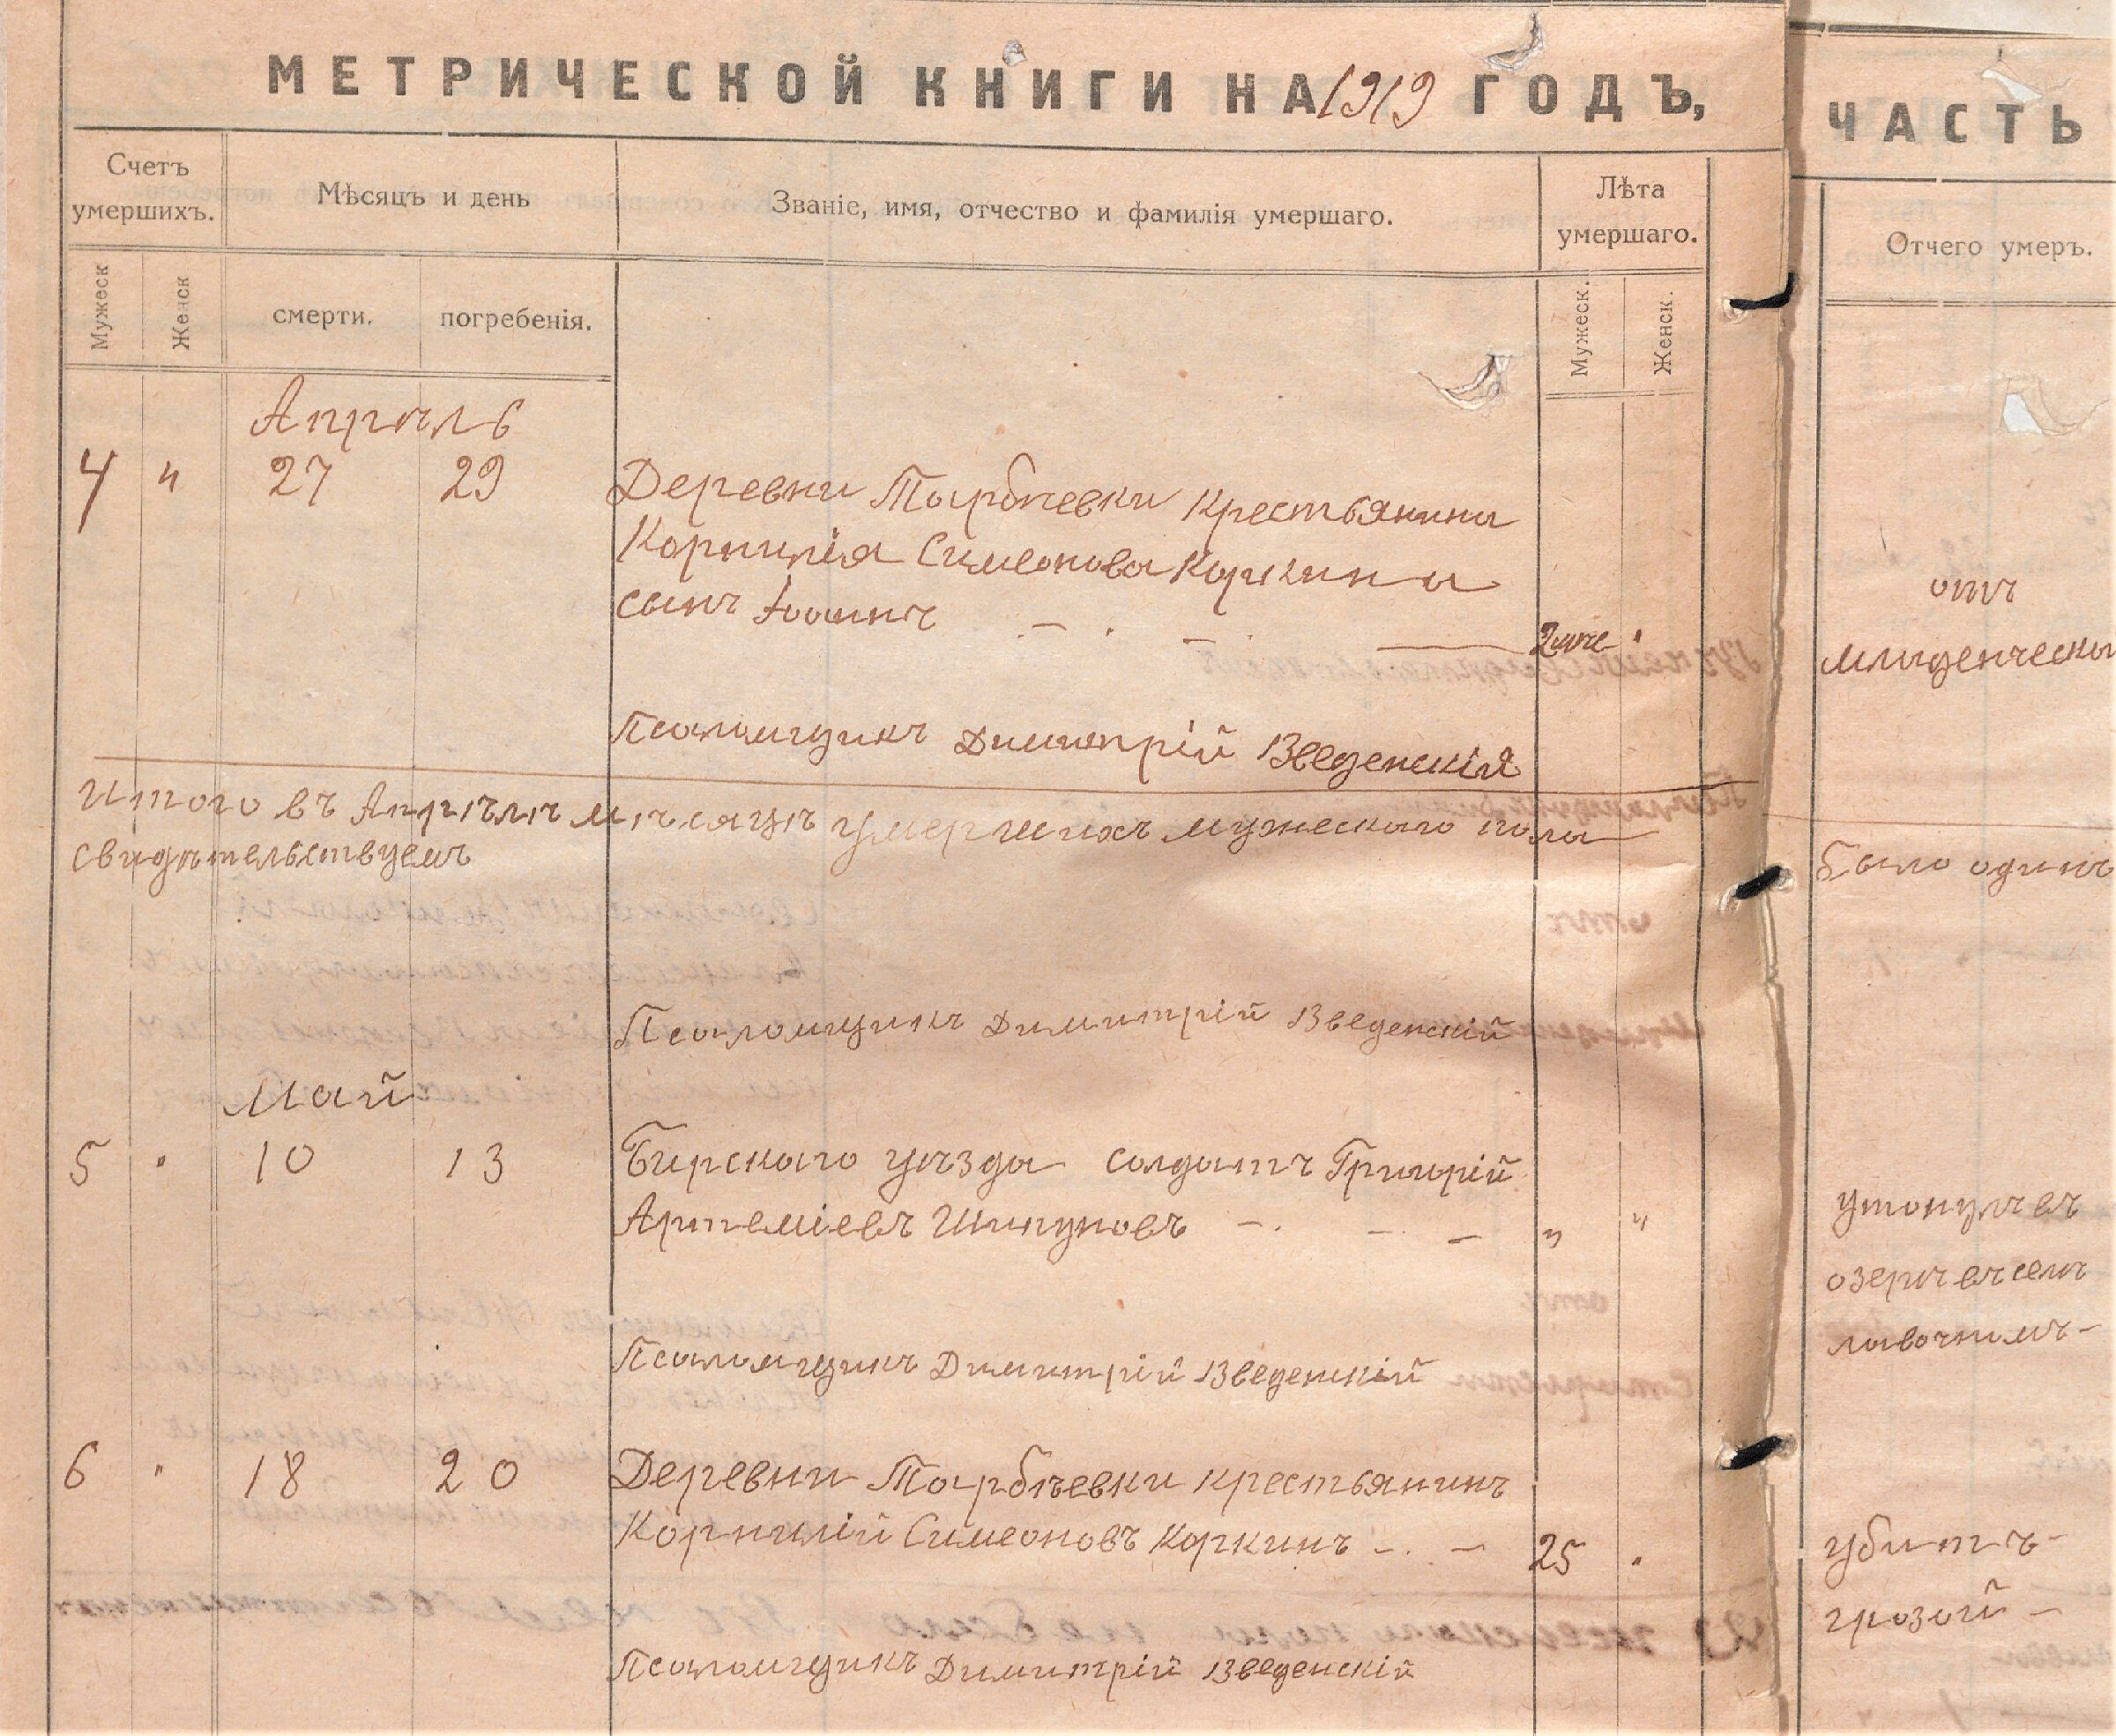 МЕТРИЧЕСКОЙ КНИГИ НА 1919 ГОДЪ,
ЧАСТЬ
Счетъ умершихъ.
Мѣсяцъ и день
Званіе, имя, отчество и фамилія умершаго.
Лѣта умершаго.
Отчего умеръ.
Мужеск
Женск
смерти.
погребенія.
Мужеск.
Женск.
Апрѣль
4 " 27 29 Деревни Тарбѣевки крестьянина
Корнилія Симеонова Коркина
отъ
сынъ Іоаннъ
младенческо
Псаломщикъ Димитрій Введенскій
Итого въ Апрѣлѣ мѣсяцѣ умершихъ мужескаго пола
было одинъ
свидѣтельствуемъ
Псаломщикъ Димитрій Введенскій
Май
5 " 10 13 Бирскаго уѣзда солдатъ Григорій
Артеміевъ Шипуновъ - . - - " "
утонулъ въ
озерѣ въ селѣ
лавочномъ-
Псаломщикъ Димитрій Введенскій
6 " 18 20 Деревни Тарбѣевки крестьянинъ
Корнилій Симеоновъ Коркинъ - . - 25 "
убитъ-
грозой -
Псаломщикъ Димитрій Введенскій